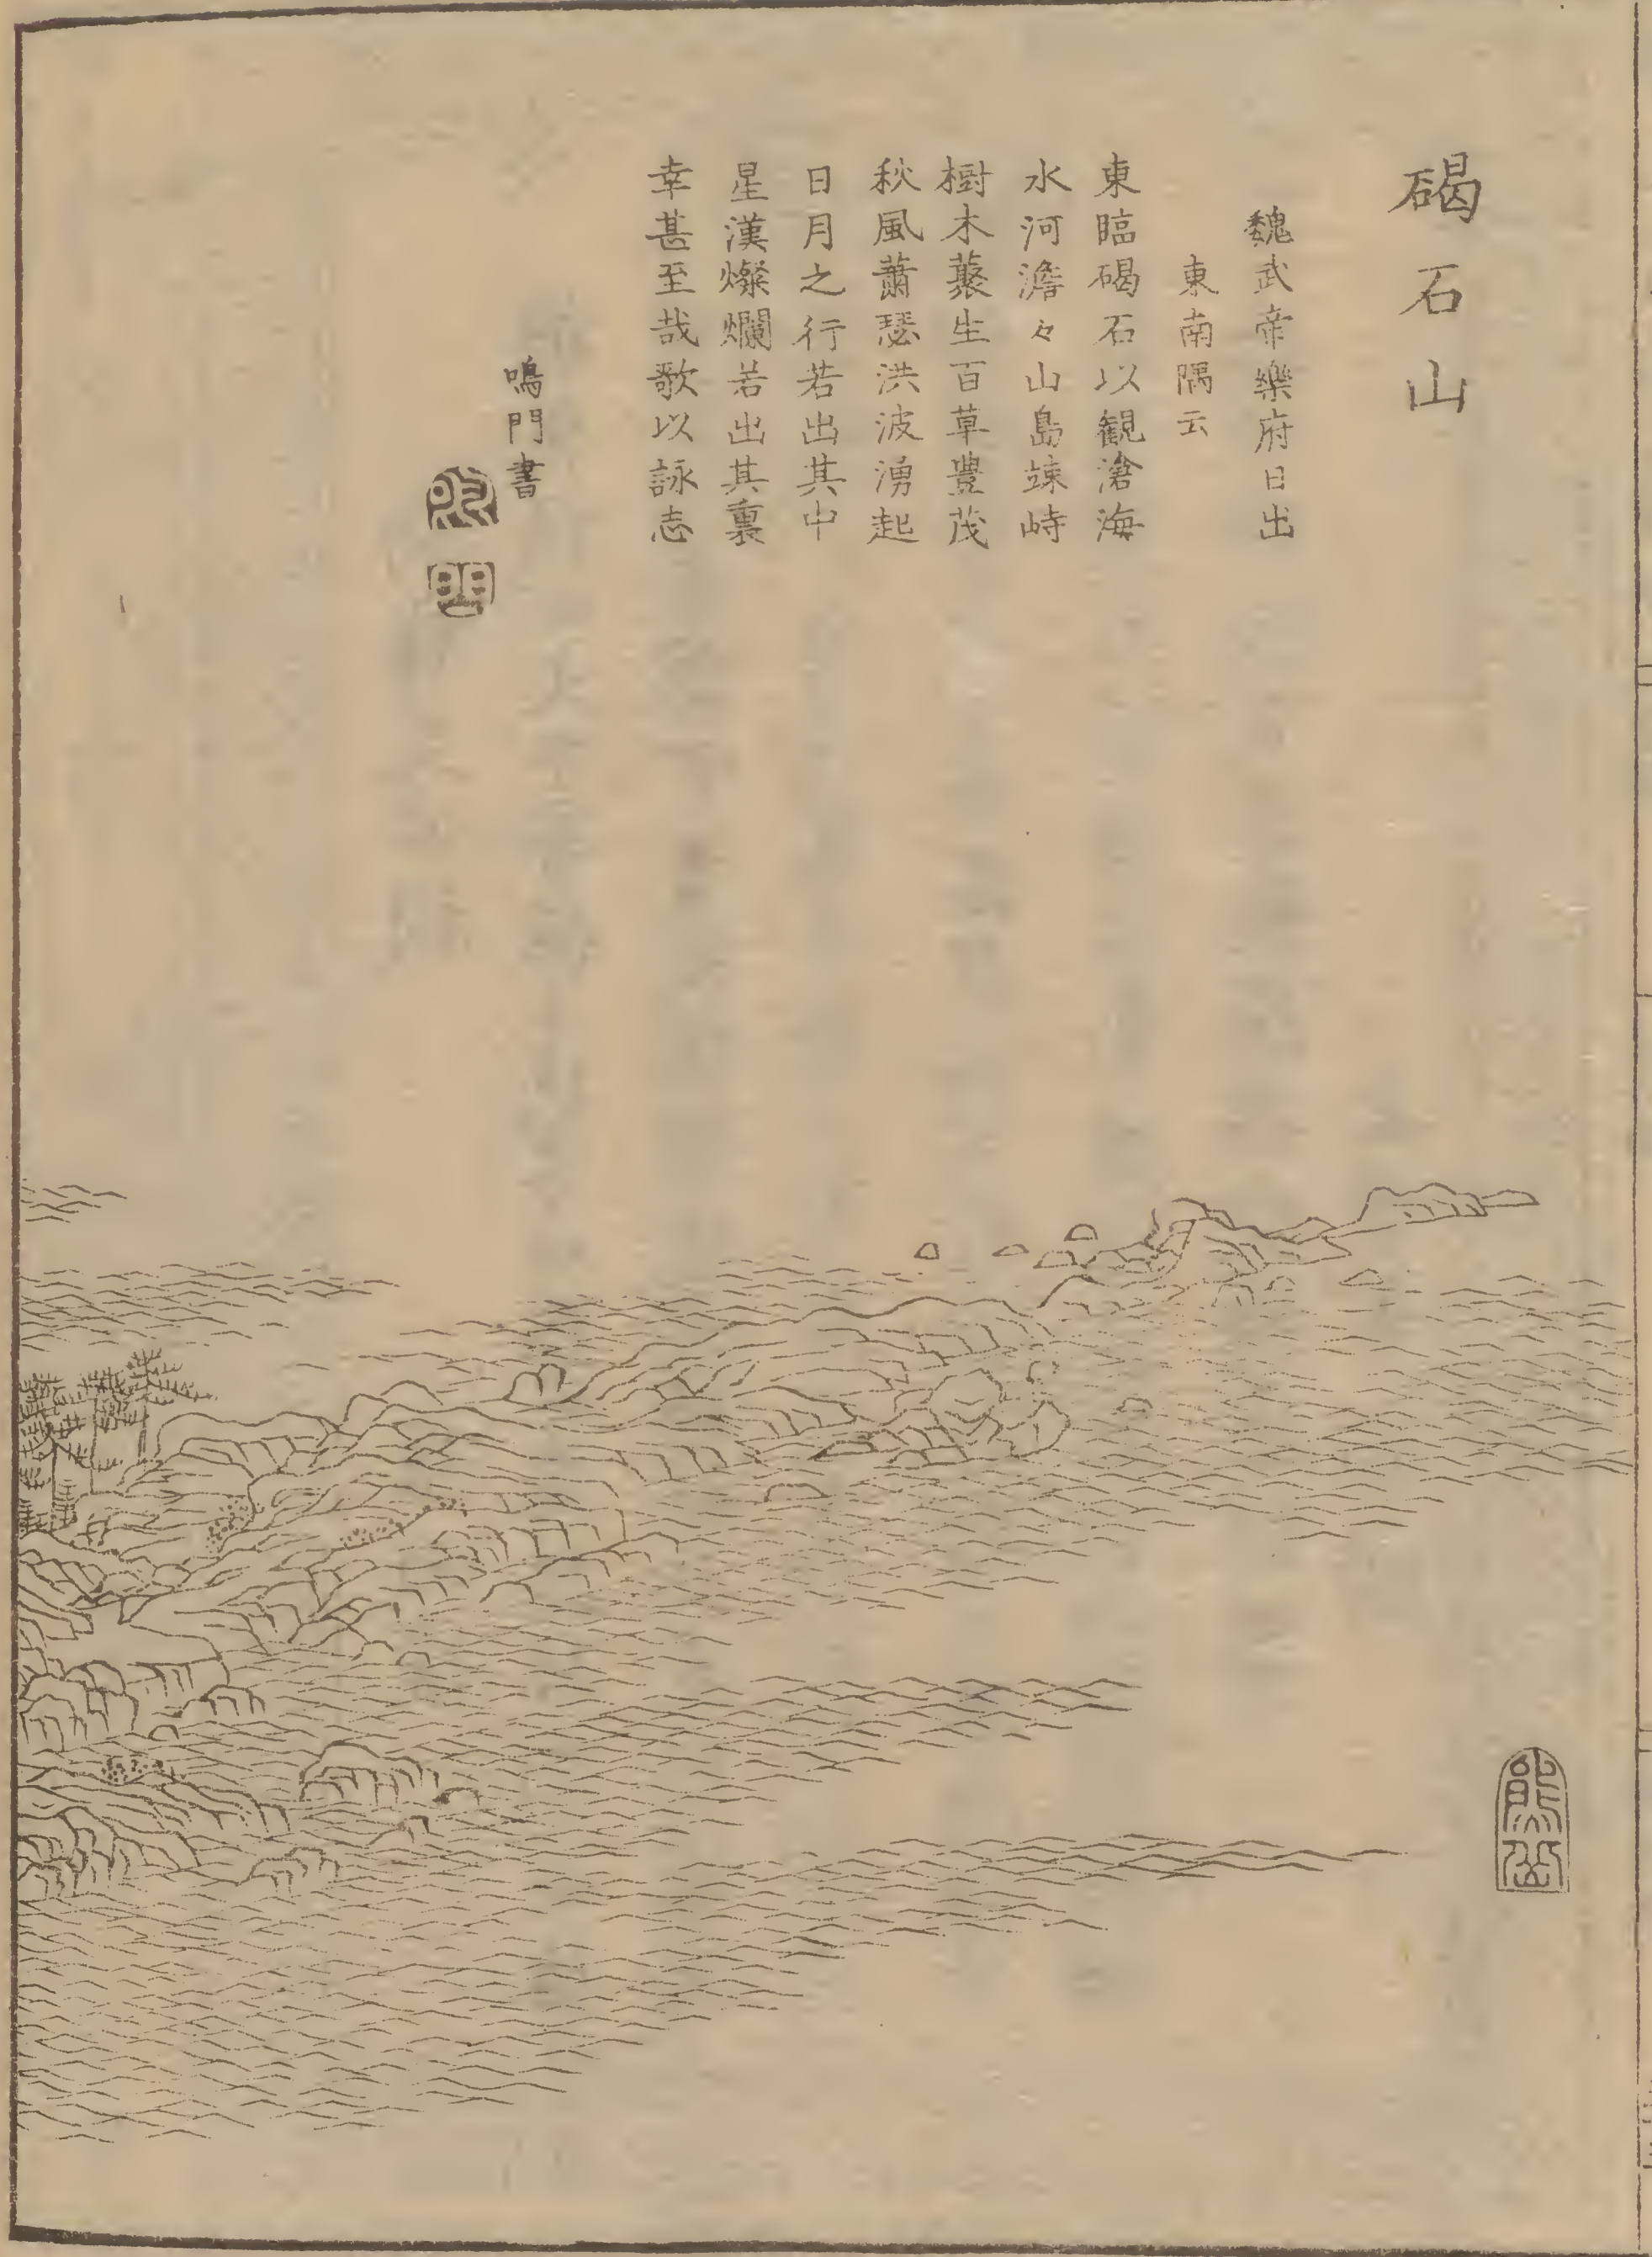 碣石山
魏武帝樂府日出
東南隅云
東臨碣石以観滄海
水河澹々山島竦峙
樹木藂生百草豊茂
秋風蕭瑟洪波湧起
日月之行若出其中
星漢燦爛若出其裏
幸甚至哉歌以詠志
鳴門書
熊岳